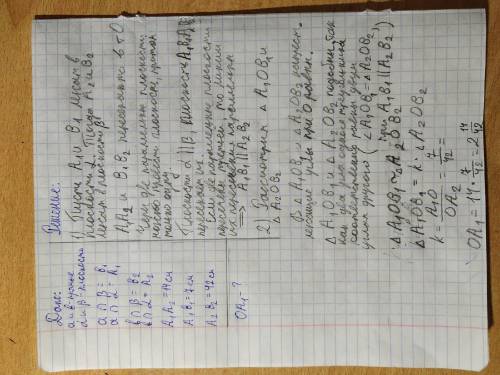 Дано:
а и в прямые
α и β плоскости
a ∩ β = B₁
a ∩ α = A₁
b ∩ β = B₂
b ∩ α = A₂
A₁A₂ = 14 см
A₁B₁ = 7 см
A₂B₂ = 42 см
OA₁ - ?
Решение:
1) Пусть A₁ и B₁ лежит в
плоскости α. Тогда A₂ и B₂
лежит в плоскости β
A₁A₂ и B₁B₂ пересекаются в т O
Через две параллельные плоскости
можно провести плоскость, притом
только одну
Плоскости α || β. Плоскость A₁B₁A₂B₂
пересекает их
Если две параллельные плоскости
пересечены третьей то линии
их пересечения параллельны
⇒ A₁B₁ || A₂B₂
2) Рассмотрим △ A₁OB₁ и
△ A₂OB₂
В △ A₁OB₁ и △ A₂OB₂
лежащие углы при O равны.
△ A₁OB₁ и △ A₂OB₂ подобны, так
как два угла одного треугольника
соответственно равны двум
углам другого (∠A₁OB₁ = ∠A₂OB₂
при A₁B₁ || A₂B₂)
△ A₁OB₁ ~ △ A₂OB₂
△ A₁OB₁ = k · △ A₂OB₂
k = A₁O / OA₂ = 7 / 42 =
OA₁ = 14 · 7/42 = 2 14/42